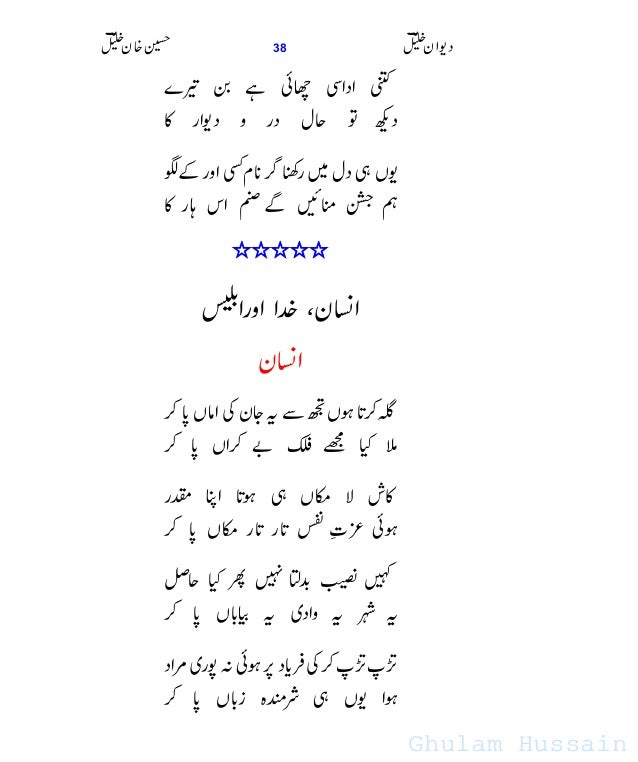 دیوان خلیلؔ 38 حسین خان خلیلؔ
کتنی اداسی چھائی ہے بن تیرے
دیکھ تو حال در و دیوار کا
یوں ہی دل میں رکھنا گر نام کسی اور کے لگو
ہم جشن منائیں گے صنم اس ہار کا
☆☆☆☆☆
انسان، خدا اور ابلیس
انسان
گلہ کرتا ہوں تجھ سے یہ جان کی اماں پا کر
ملا کیا مجھے فلک بے کراں پا کر
کاش لا مکاں ہی ہوتا اپنا مقدر
ہوئی عزتِ نفس تار تار مکاں پا کر
کہیں نصیب بدلتا نہیں پھر کیا حاصل
یہ شہر یہ وادی یہ بیاباں پا کر
تڑپ تڑپ کر کی فریاد پر ہوئی نہ پوری مراد
ہوا یوں ہی شرمندہ زباں پا کر
Ghulam Hussain